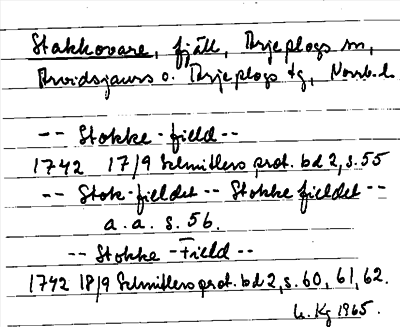 Stakkovare, fjäll, Arjeplogs sn,
Arvidsjaurs o. Arjeplogs tg, Norrb. l.
-- Stokke-field --
1742 17/9 Schnitlers prot. bd 2, s. 55
-- Stok-fieldet -- Stokke fieldet --
a. a. s. 56.
-- Stokke-Field --
1742 18/9 Schnitlers prot. bd 2, s. 60, 61, 62.
Kg 1965.